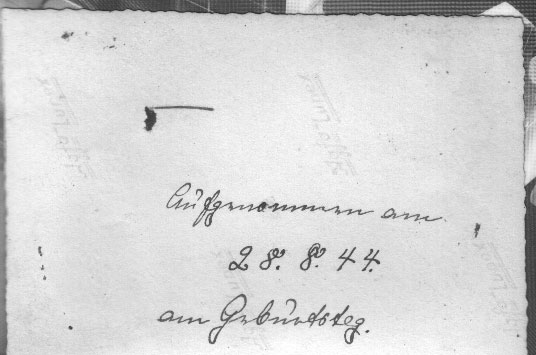 Aufgenommen am
28. 8. 44.
am Geburtstag.